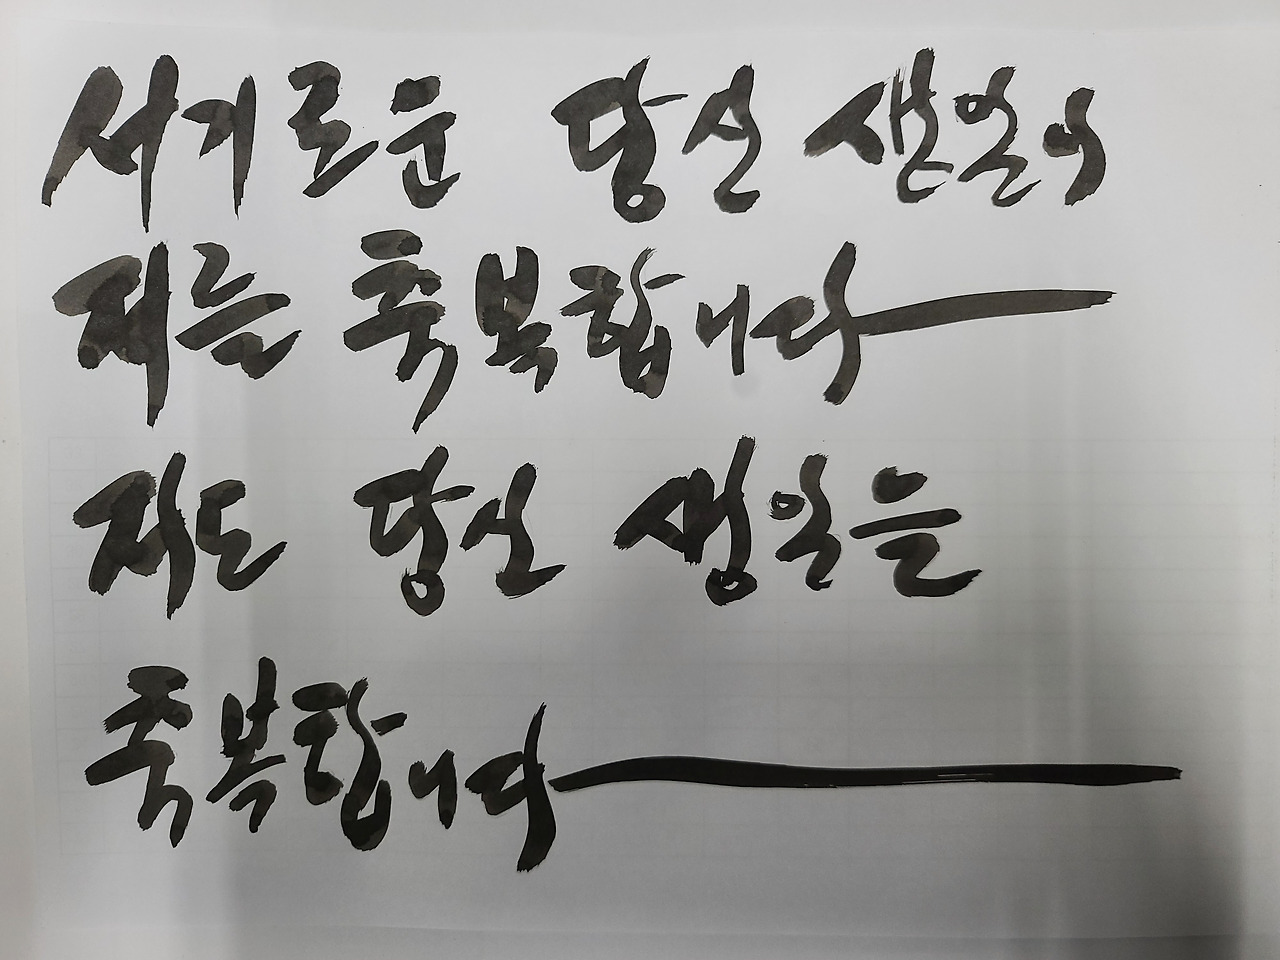 서기로운 당신 생일이
저를 축복합니다
저도 당신 생일을
축복합니다